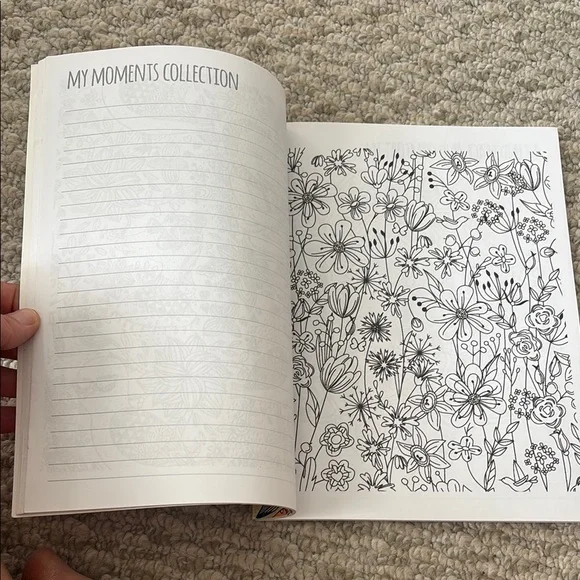 MY MOMENTS COLLECTION